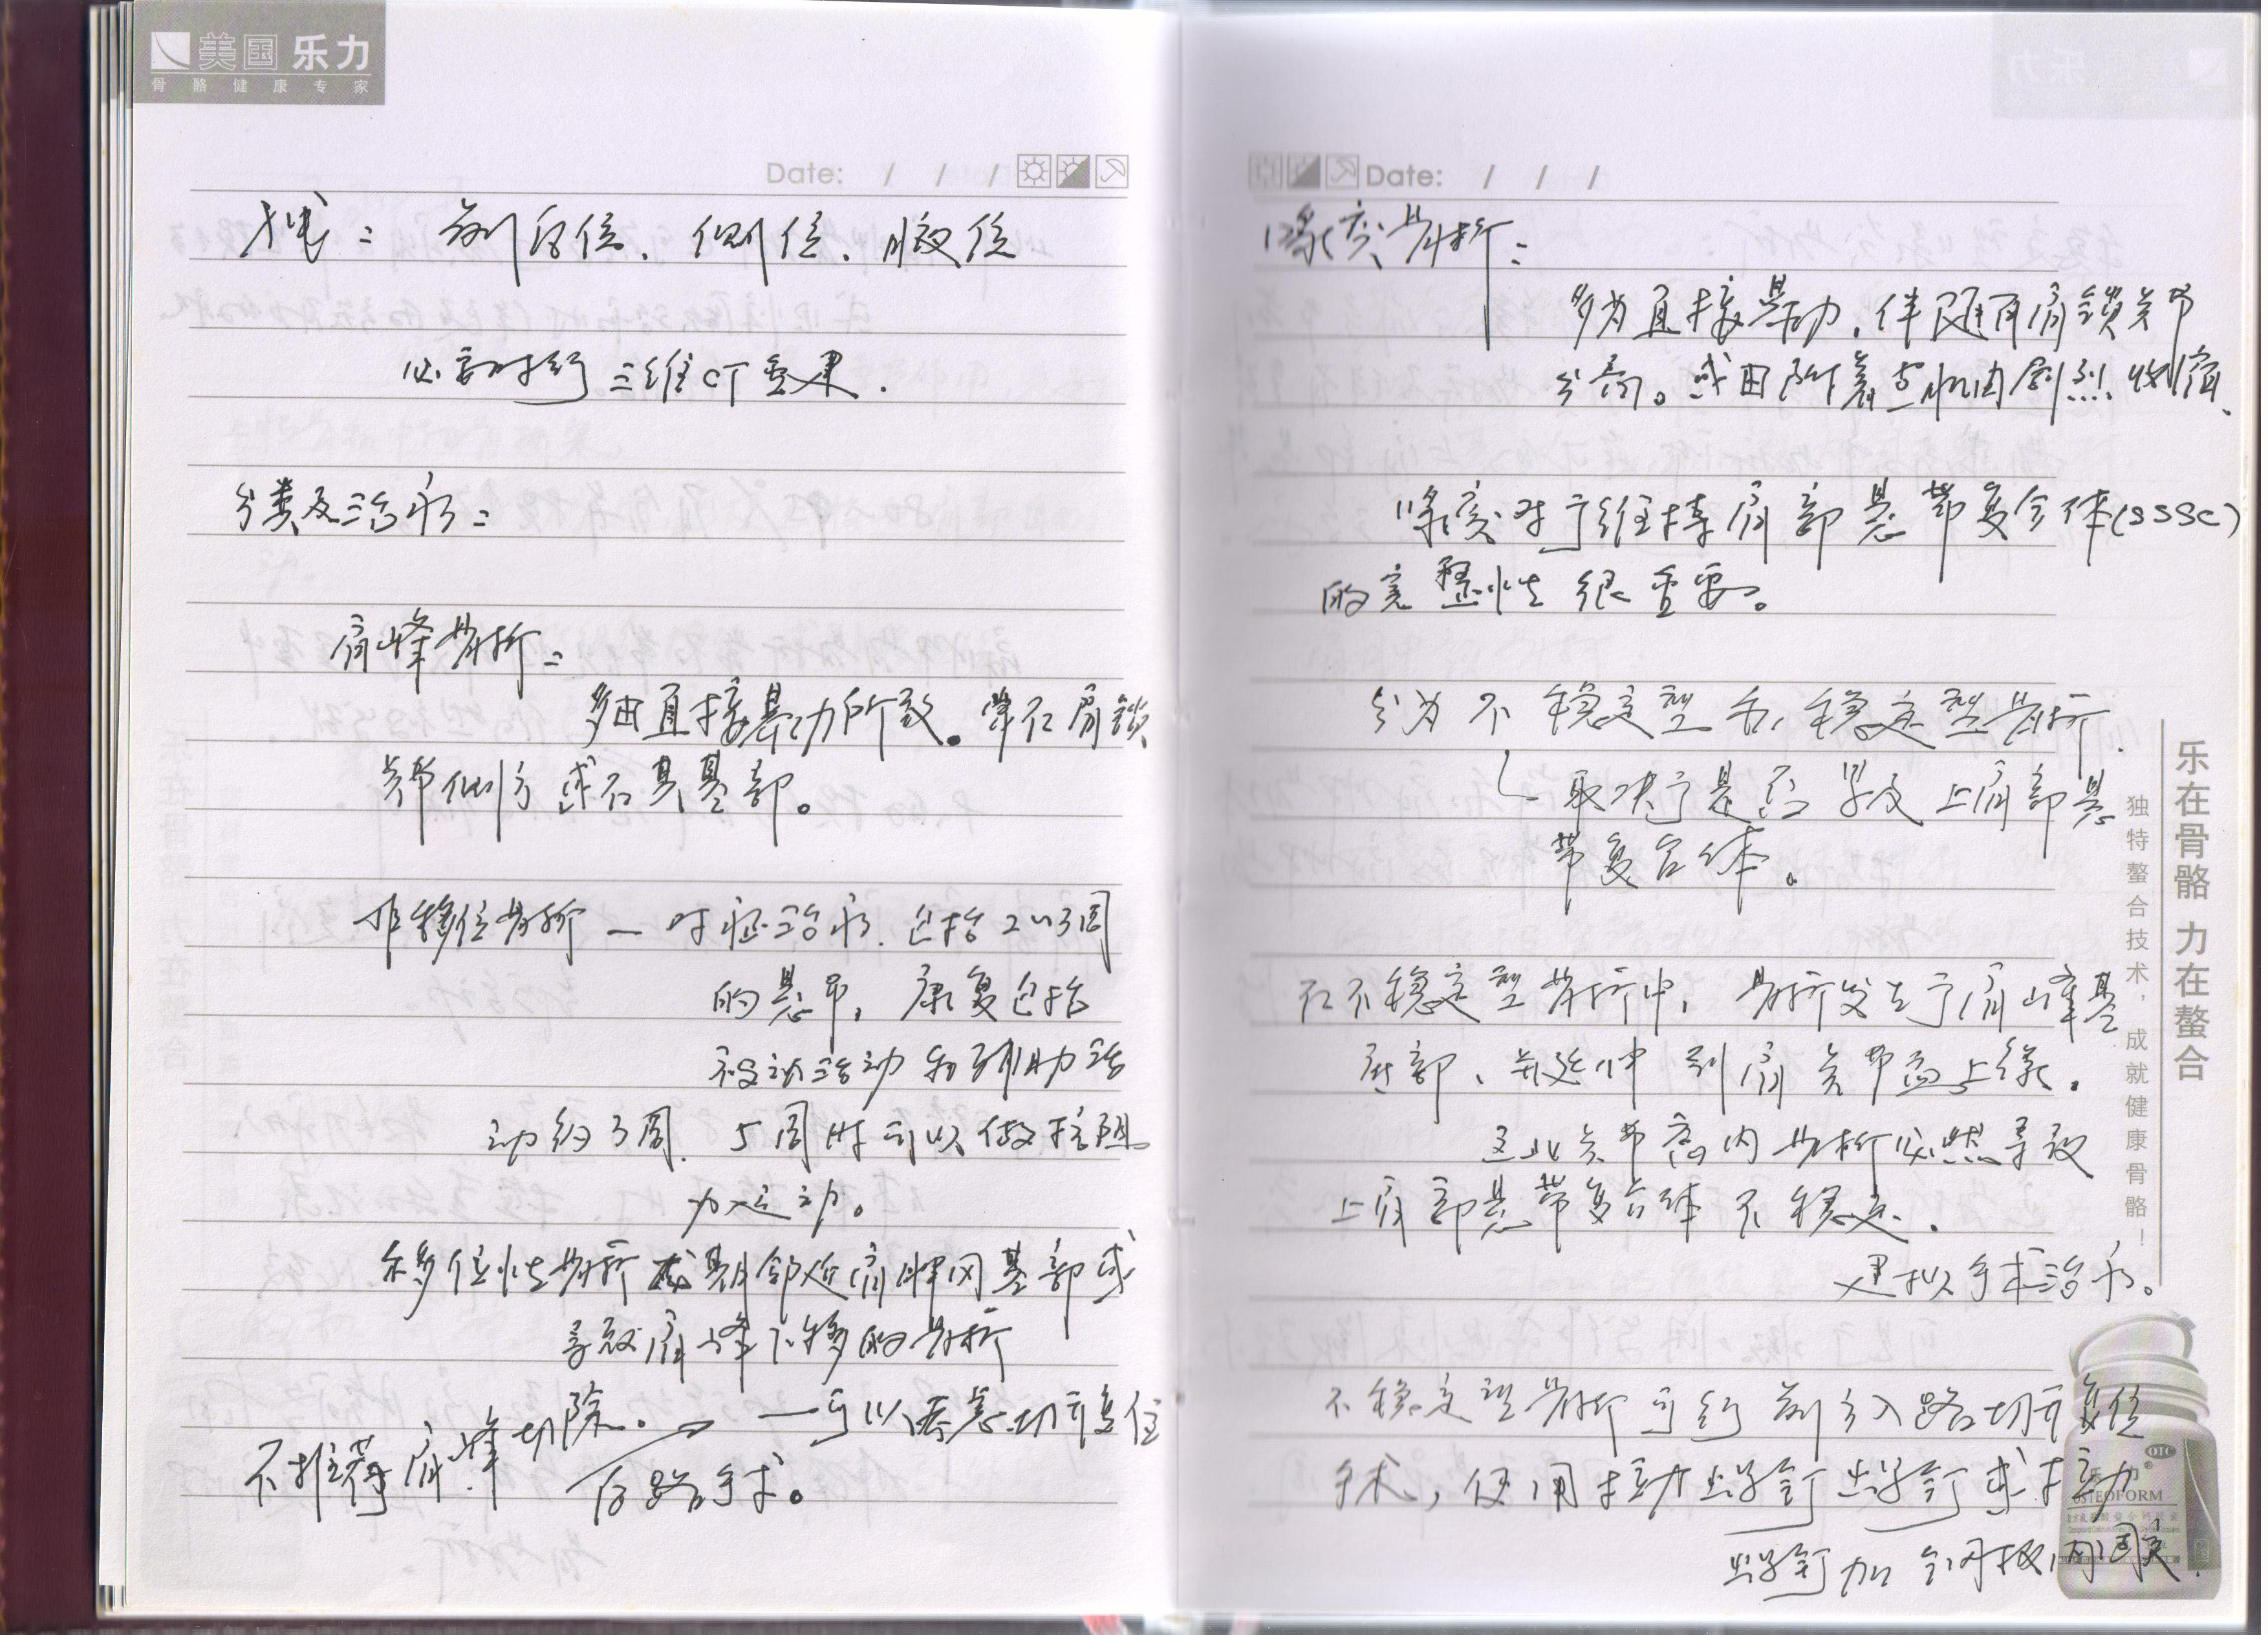 美国 乐力
骨骼健康专家
Date: / / /
X线: 前后位、侧位、腋位
必要时行三维CT重建.
分类及治疗:
肩峰骨折:
多由直接暴力所致。常在肩锁
关节侧方或在其基部。
非移位骨折 — 对症治疗. 包括2~3周
的悬吊, 康复包括
被动活动和辅助活
动约3周. 5周时可以做抗阻
力运动。
移位性骨折或期邻近肩胛冈基部或
导致肩峰下移的骨折
— 可以考虑切开复位
不推荐肩峰切除。
后路手术。
Date: / / /
喙突骨折:
多为直接暴力, 伴随有肩锁关节
分离。或由附着点肌肉剧烈收缩、
喙突对于维持肩部悬带复合体(SSSC)
的完整性很重要。
分为不稳定型和稳定型骨折.
取决于是否累及上肩部悬
带复合体。
在不稳定型骨折中, 骨折发生于肩峰基
底部、并延伸到肩关节盂上缘.
这些关节窝内骨折必然导致
上肩部悬带复合体不稳定.
建议手术治疗。
不稳定型骨折可行前方入路切开复位
手术, 使用拉力螺钉 螺钉或拉力
螺钉加钢板内固定.
乐在骨骼 力在螯合
独特螯合技术,成就健康骨骼!
OTC
乐力
OSTEOFORM